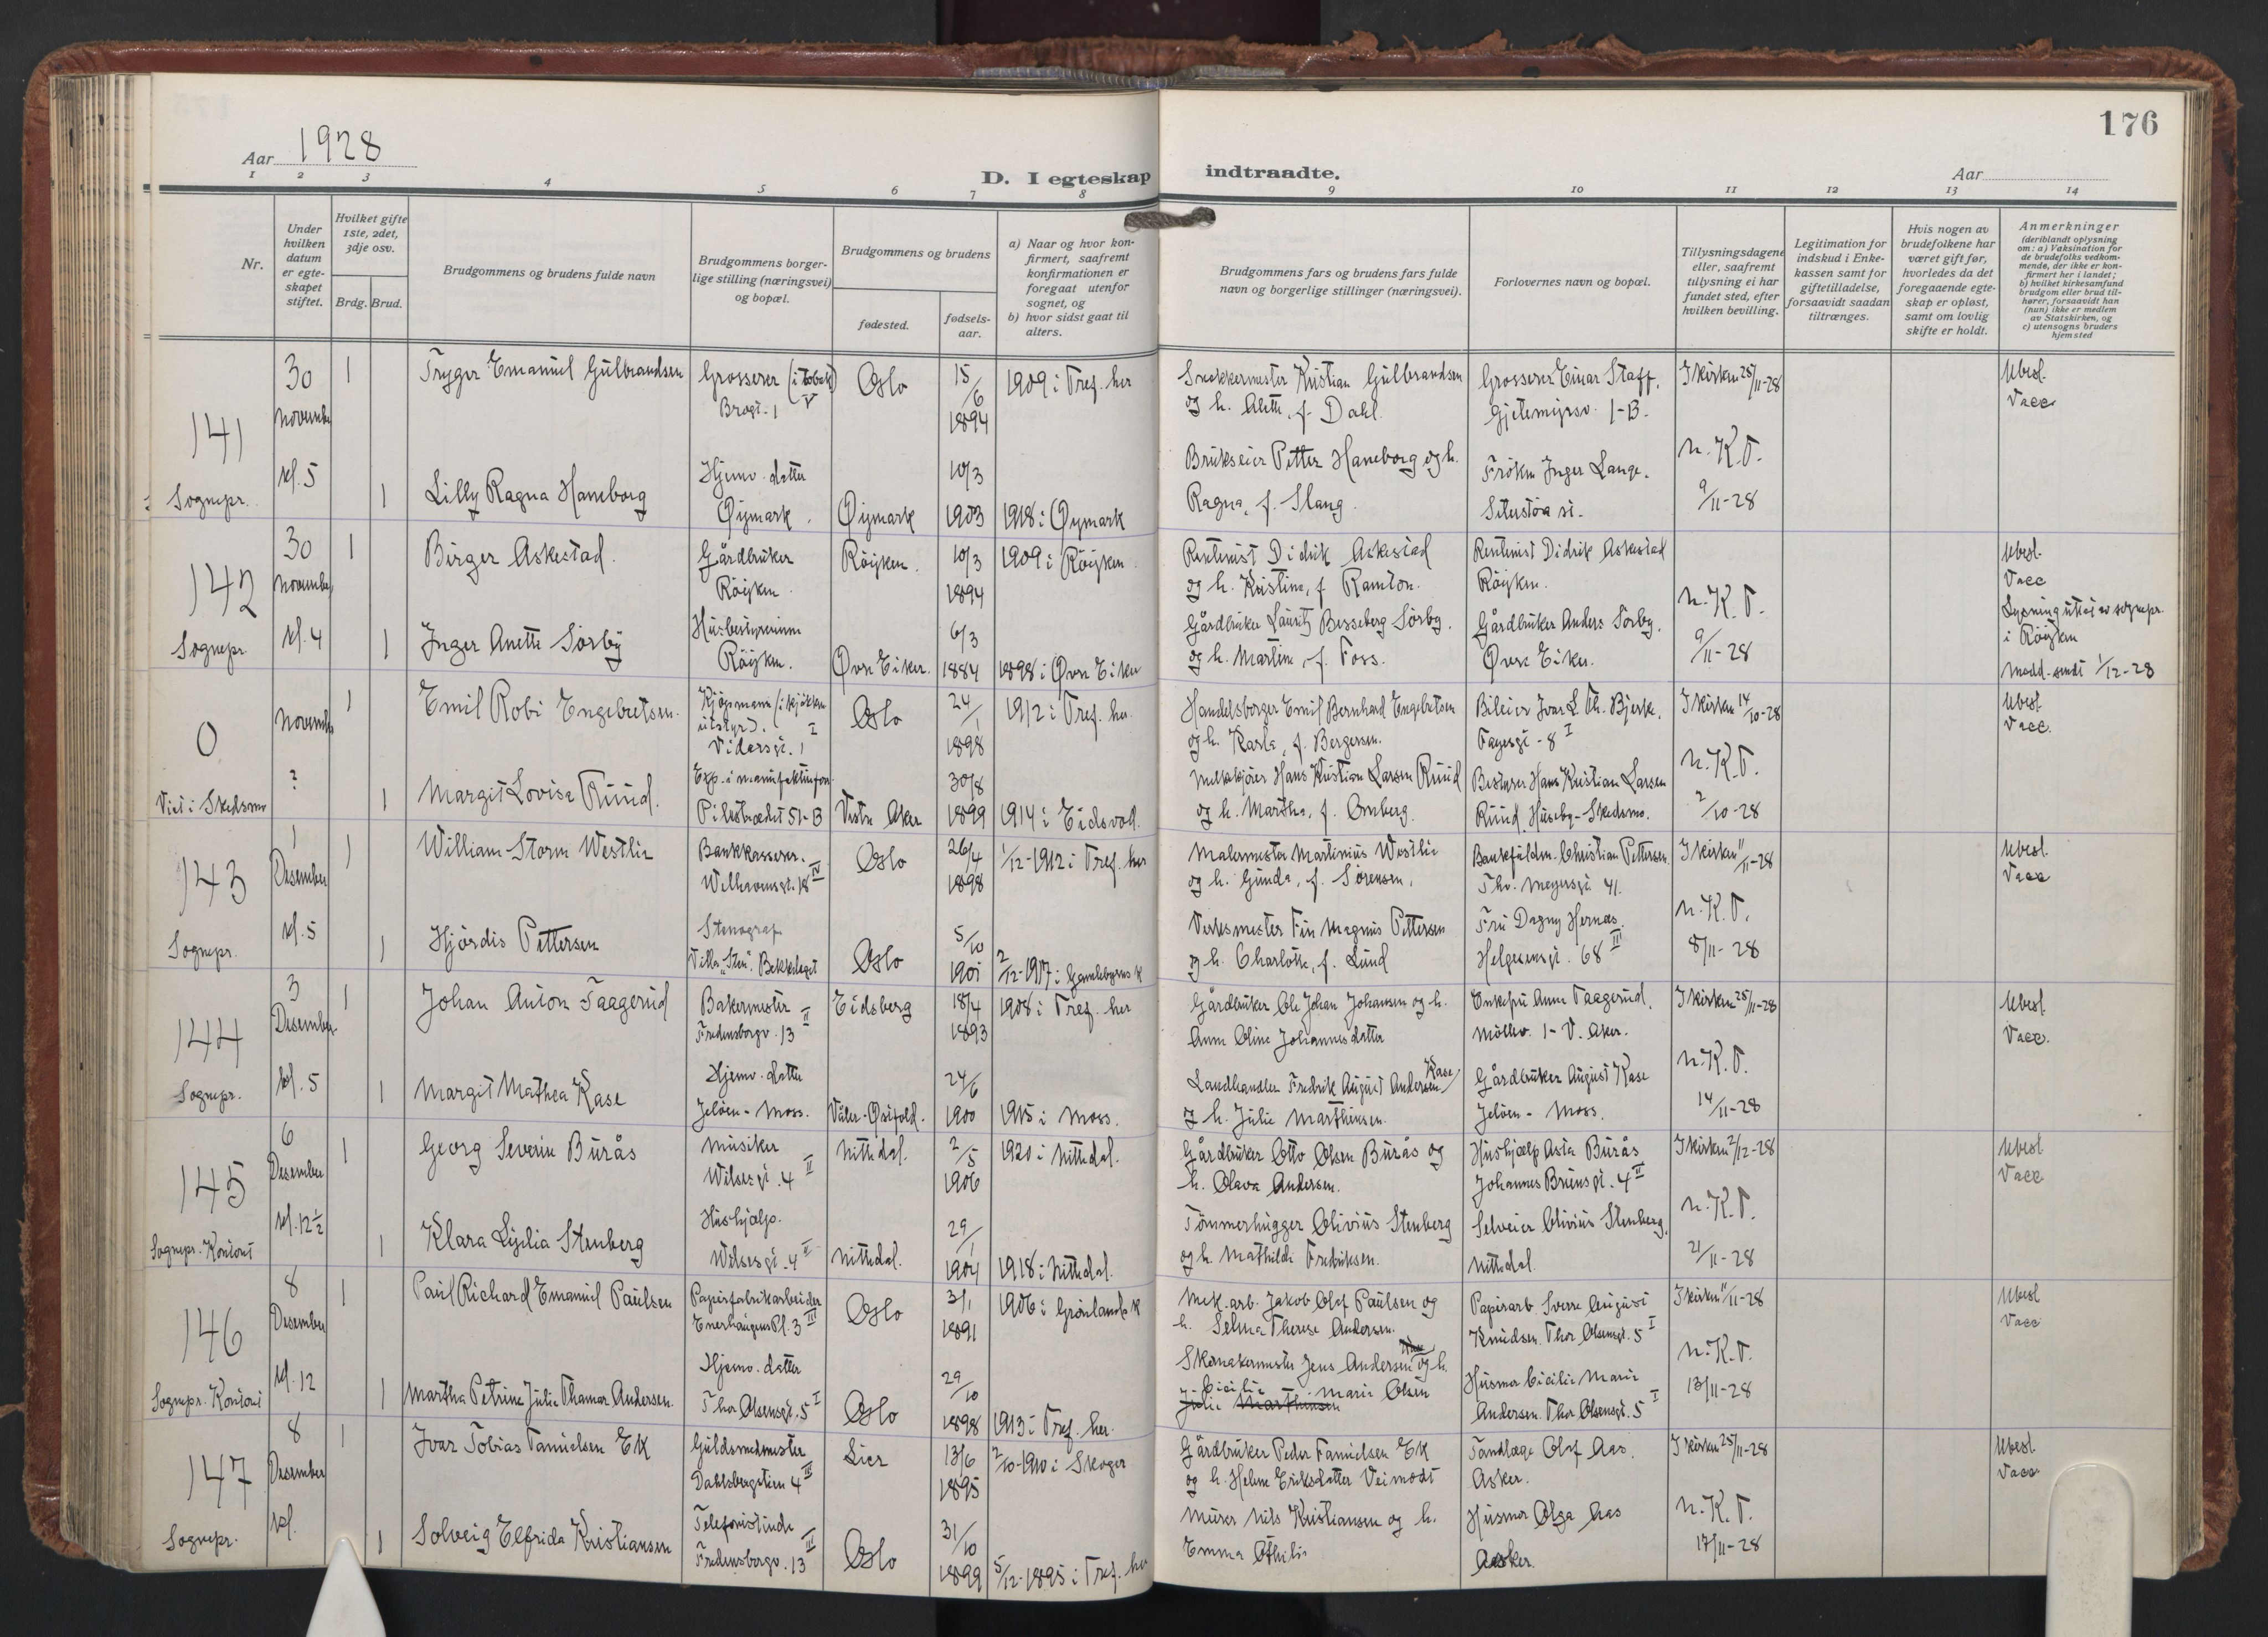 176
Aar 1928
Aar
D. I egteskap indtraadte.
1 2 3 4 5 6 7 8 9 10 11 12 13 14
Nr.
Under hvilken datum er egteskapet stiftet.
Hvilket gifte 1ste, 2det, 3dje osv.
Brdg. Brud.
Brudgommens og brudens fulde navn
Brudgommens borgerlige stilling (næringsvei) og bopæl.
Brudgommens og brudens
fødested.
fødselsaar.
a) Naar og hvor konfirmert, saafremt konfirmationen er foregaat utenfor sognet, og
b) hvor sidst gaat til alters.
Brudgommens fars og brudens fars fulde navn og borgerlige stillinger (næringsvei).
Forlovernes navn og bopæl.
Tillysningsdagene eller, saafremt tillysning ei har fundet sted, efter hvilken bevilling.
Legitimation for indskud i Enkekassen samt for giftetilladelse, forsaavidt saadan tiltrænges.
Hvis nogen av brudefolkene har været gift før, hvorledes da det foregaaende egteskap er opløst, samt om lovlig skifte er holdt.
Anmerkninger
(deriblandt oplysning om: a) Vaksination for de brudefolks vedkommende, der ikke er konfirmert her i landet;
b) hvilket kirkesamfund brudgom eller brud tilhører, forsaavidt han (hun) ikke er medlem av Statskirken, og
c) utensogns bruders hjemsted
141 Sognepr.
30 November kl. 5
1 Trygve Emanuel Gulbrandsen Grosserer (i tobak) Brogt. 1 V Oslo 15/6 1894 1909 i Tref. her
Snekkermester Kristian Gulbrandsen og h. Alette, f. Dahl. Grosserer Einar Staff, Gjetemyrsv. 1-B. I kirken 25/11-28 Ubesl. Vacc.
1 Lilly Ragna Haneborg Hjemv. datter Øymark. Øymark 10/3 1903 1918 i Øymark
Brukseier Petter Haneborg og h. Ragna, f. Slang. Frøken Inger Lange. n. K. T. 9/11-28
142 Sognepr.
30 November kl. 4
1 Birger Askestad. Gårdbruker Røyken. Røyken. 10/3 1894 1909 i Røyken.
Rentenist Didrik Askestad og h. Kristine, f. Ramton. Rentenist Didrik Askestad Røyken. Ubesl. Vacc
1 Inger Anette Sørby Husbestyrerinne Røyken. Øvre Eiker. 6/3 1884 1898 i Øvre Eiker
Gårdbruker Lauritz Besseberg Sørby. og h. Martine, f. Foss. Gårdbruker Anders Sørby. Øvre Eiker. n. K. T. 9/11-28
Lysning utst. av sognepr. i Røyken
Medd. sendt 1/12-28
0 Viet i Skedsmo
November ?
1 Emil Robi Engebretsen. Kjøpmann (i kjøkkenutstyr). I Vidarsgt. 1 Oslo 24/1 1898 1912 i Tref. her.
Handelsborger Emil Bernhard Engebretsen og h. Karla, f. Bergersen. Bileier Ivar L. Th. Bjerke, Fayesgt - 8 I I kirken 14/10-28 Ubesl. Vacc.
1 Margit Lovise Ruud. Exp. i manufakturforr. Pilestrædet 51-B Vestre Aker 30/8 1899 1914 i Eidsvold.
Melkekjører Hans Kristian Larsen Ruud og h. Martha, f. Omberg. Bestyrer Hans Kristian Larsen Ruud, Huseby-Skedsmo. n. K. T. 2/10-28
143 Sognepr.
1 Desember kl. 5
1 William Storm Westlie Bankkasserer. Welhavensgt. 18 IV Oslo 26/4 1898 1/12-1912 i Tref. her
Malermester Martinius Westlie og h. Gunda, f. Sørensen, Bankfuldm. Christian Pettersen. Thv. Meyersgt. 41. I kirken 11/11-28 Ubesl. Vacc
1 Hjørdis Pettersen Stenograf Villa "Sten". Bekkelaget Oslo 5/10 1901 2/12-1917 i Gamlebyens k
Verksmester Fin Magnus Pettersen og h. Charlotte, f. Lund Fru Dagny Hernæs. Helgesensgt. 68 III n. K. T. 8/11-28
144 Sognepr.
3 Desember kl. 5
1 Johan Anton Taagerud Bakermester Fredensborgv. 13 II Eidsberg 18/4 1893 1908 i Tref. her
Gårdbruker Ole Johan Johansen og h. Anne Oline Johannesdatter Enkefru Anna Taagerud, Møllev. 1 - V. Aker. I kirken 25/11-28 Ubesl. Vacc.
1 Margit Mathea Kase Hjemv. datter Jeløen - Moss. Våler-Østfold. 24/6 1900 1915 i Moss.
Landhandler Fredrik August Andersen Kase, og h. Julie Marthinsen. Gårdbruker August Kase Jeløen - Moss. n. K. T. 14/11-28
145 Sognepr. Kontort
6 Desember kl. 12½
1 Georg Severin Burås Musiker Wilsesgt. 4 II Nittedal. 2/5 1906 1920 i Nittedal.
Gårdbruker Otto Olsen Burås og h. Olava Andersen. Hushjælp Asta Burås Johannes Brunsgt. 4 II I kirken 2/12-28 Ubesl. Vacc
1 Klara Lydia Stenberg Hushjælp. Wilsesgt. 4 II Nittedal. 29/1 1904 1918 i Nittedal.
Tømmerhugger Olivius Stenberg og h. Mathilde Fredriksen. Selveier Olivius Stenberg, Nittedal. n. K. T. 21/11-28
146 Sognepr. Kontort
8 Desember kl. 12
1 Paul Richard Emanuel Paulsen Papirfabrikarbeider Enerhaugens Pl. 3 III Oslo 3/1 1891 1906 i Grønlands k
Mek. arb. Jakob Olaf Paulsen og h. Selma Therese Andersen. Papirarb. Sverre August Knudsen. Thor Olsensgt. 5 I I kirken 11/11-28 Ubesl Vacc
1 Martha Petrine Julie Thamar Andersen. Hjemv. datter Thor Olsensgt. 5 I Oslo 29/10 1898 1913 i Tref. her.
Skomakermester Jens Andersen og h. Cicilie Marie Olsen Julie Marthinsen Husmor Cicilie Marie Andersen. Thor Olsensgt. 5 I n. K. T. 13/11-28
147 Sognepr.
8 Desember kl.
1 Ivar Tobias Tanielsen Ek Guldsmedmester Dahlsbergstien 4 III Lier 13/6 1895 2/10-1910 i Skoger
Gårdbruker Peder Tanielsen Ek og h. Helene Eriksdatter Veimodt Tandlæge Olaf Aas. Asker. I kirken 25/11-28 Ubesl. Vacc
1 Solveig Elfrida Kristiansen Telefonistinde Fredensborgv. 13 III Oslo 31/10 1899 5/12-1895 i Tref. her
Murer Nils Kristiansen og h. Emma Othilie Husmor Olga Aas Asker. n. K. T. 17/11-28